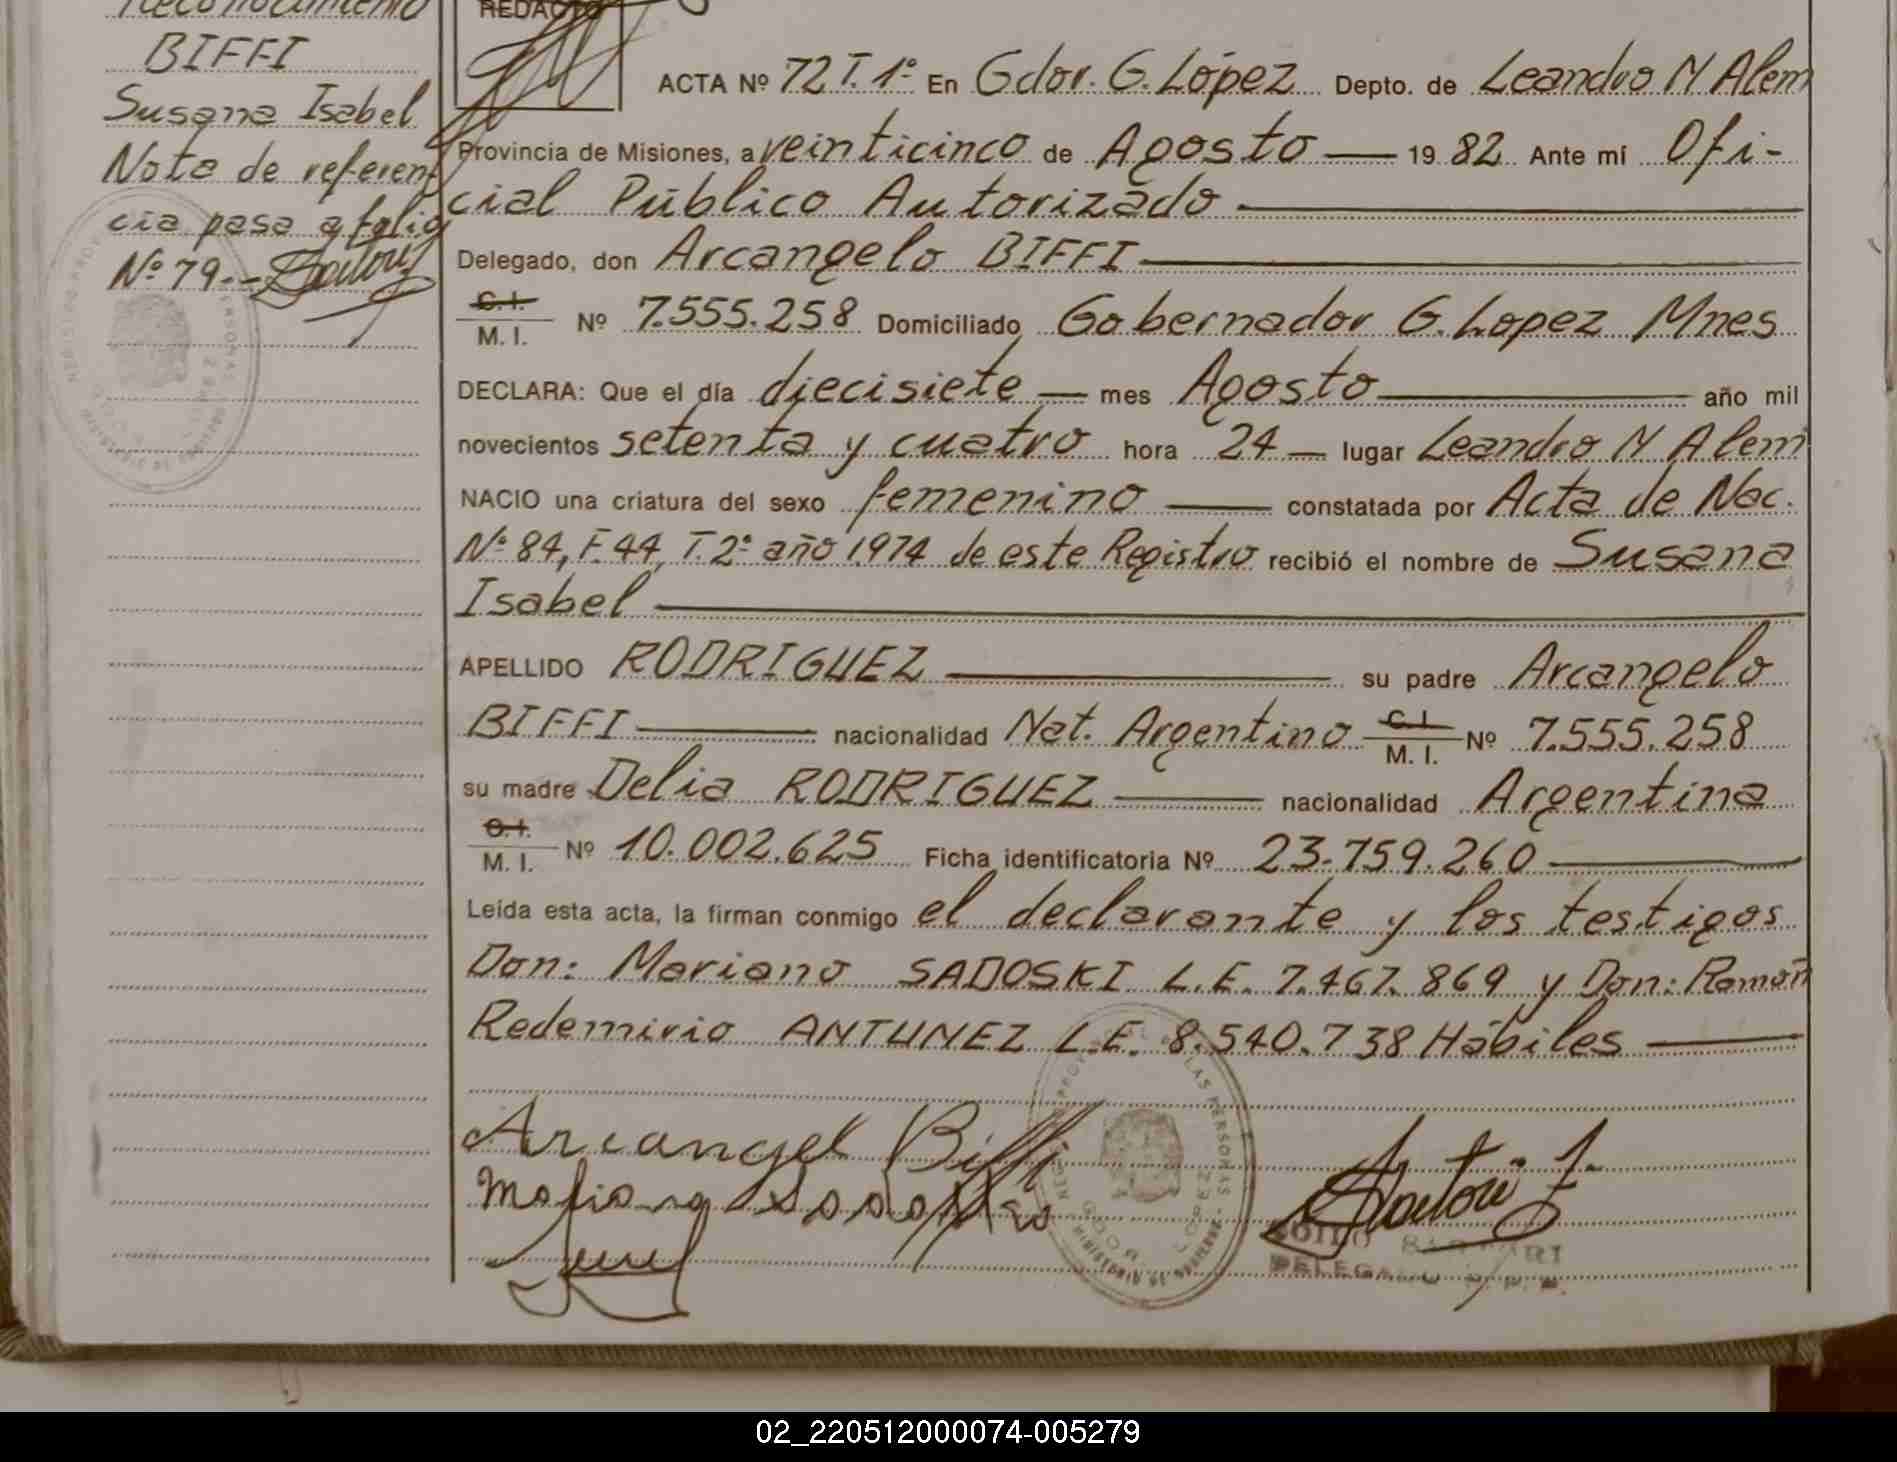 Reconocimiento
BIFFI
Susana Isabel
Nota de referen
cia pasa a folio
Nº 79.-
REDACTO
ACTA Nº 72 T. 1º En Gdor. G. López Depto. de Leandro N Alem
Provincia de Misiones, a veinticinco de Agosto — 19 82 Ante mí Ofi-
cial Público Autorizado
Delegado, don Arcangelo BIFFI
C. I.
M. I. Nº 7.555.258 Domiciliado Gobernador G. Lopez Mnes
DECLARA: Que el día diecisiete — mes Agosto — año mil
novecientos setenta y cuatro hora 24 — lugar Leandro N Alem
NACIO una criatura del sexo femenino — constatada por Acta de Nac.
Nº 84, F. 44, T. 2º año 1974 de este Registro recibió el nombre de Susana
Isabel
APELLIDO RODRIGUEZ — su padre Arcangelo
BIFFI — nacionalidad Nat. Argentino C. I. M. I. Nº 7.555.258
su madre Delia RODRIGUEZ — nacionalidad Argentina
C. I.
M. I. Nº 10.002.625 Ficha identificatoria Nº 23.759.260
Leída esta acta, la firman conmigo el declarante y los testigos
Don: Mariano SADOSKI L.E. 7.467.869 y Don: Ramón
Redemirio ANTUNEZ L.E. 8.540.738 Hábiles
Arcangel Biffi
Sartori J.
DELEGADO R. P. P.
02_220512000074-005279